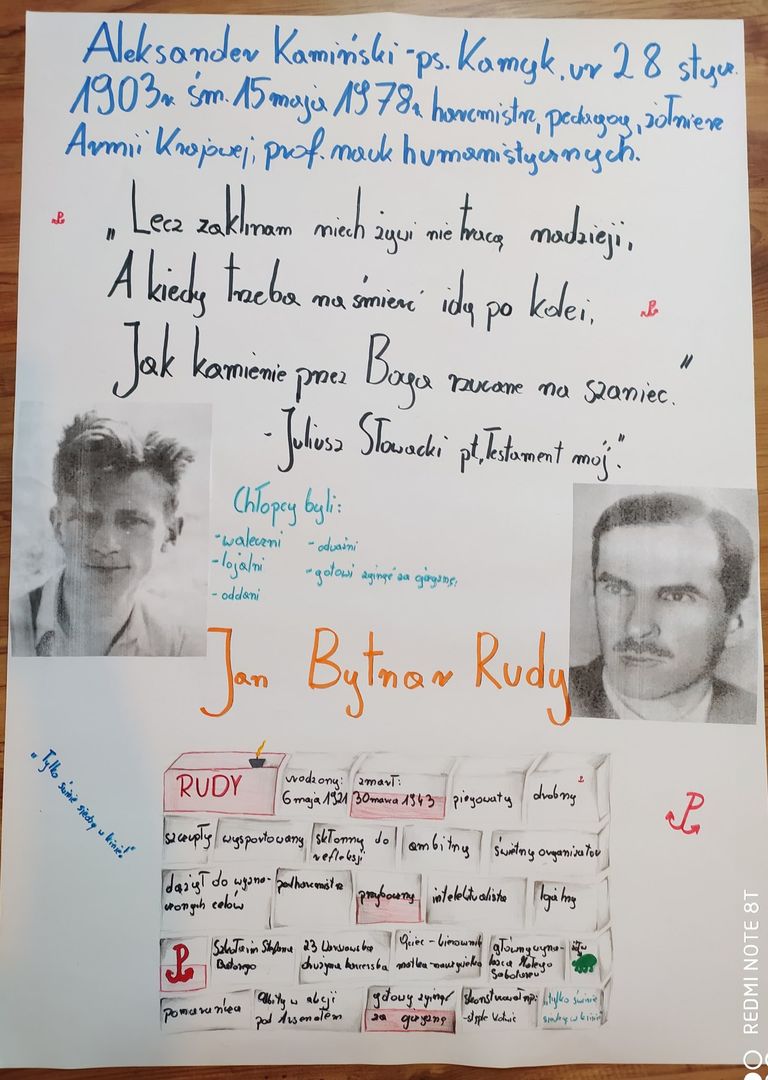 Aleksander Kamiński-ps. Kamyk, ur 28 stycz.
1903r śm. 15 maja 1978r harcmistrz, pedagog, żołnierz
Armii Krajowej, prof. nauk humanistycznych.
„Lecz zaklinam niech żywi nie tracą nadzieji,
A kiedy trzeba na śmierć idą po kolei,
Jak kamienie przez Boga rzucane na szaniec."
-Juliusz Słowacki pt. „Testament mój"
Chłopcy byli:
-waleczni
-odważni
-lojalni
-gotowi zginąć za ojczyznę.
-oddani
Jan Bytnar Rudy
„Tylko świnie siedzą w kinie!"
RUDY
urodzony:
6 maja 1921
zmarł:
30 marca 1943
piegowaty
drobny
szczupły
wysportowany
skłonny do
refleksji
ambitny
świetny organizator
dążył do wyzna-
czonych celów
podharcmistrz
przybowny
intelektualista
lojalny
Szkoła im Stefana
Batorego
23 Warszawska
drużyna harcerska
Ojciec-kierownik
matka-nauczycielka
główny wyko-
nawca Małego
Sabotażu
żółw
pomarańcza
odbity w akcji
pod Arsenałem
gotowy zginąć
za ojczyznę
skonstruował np:
-stęple Kotwic
„tylko świnie
siedzą w kinie"
REDMI NOTE 8T